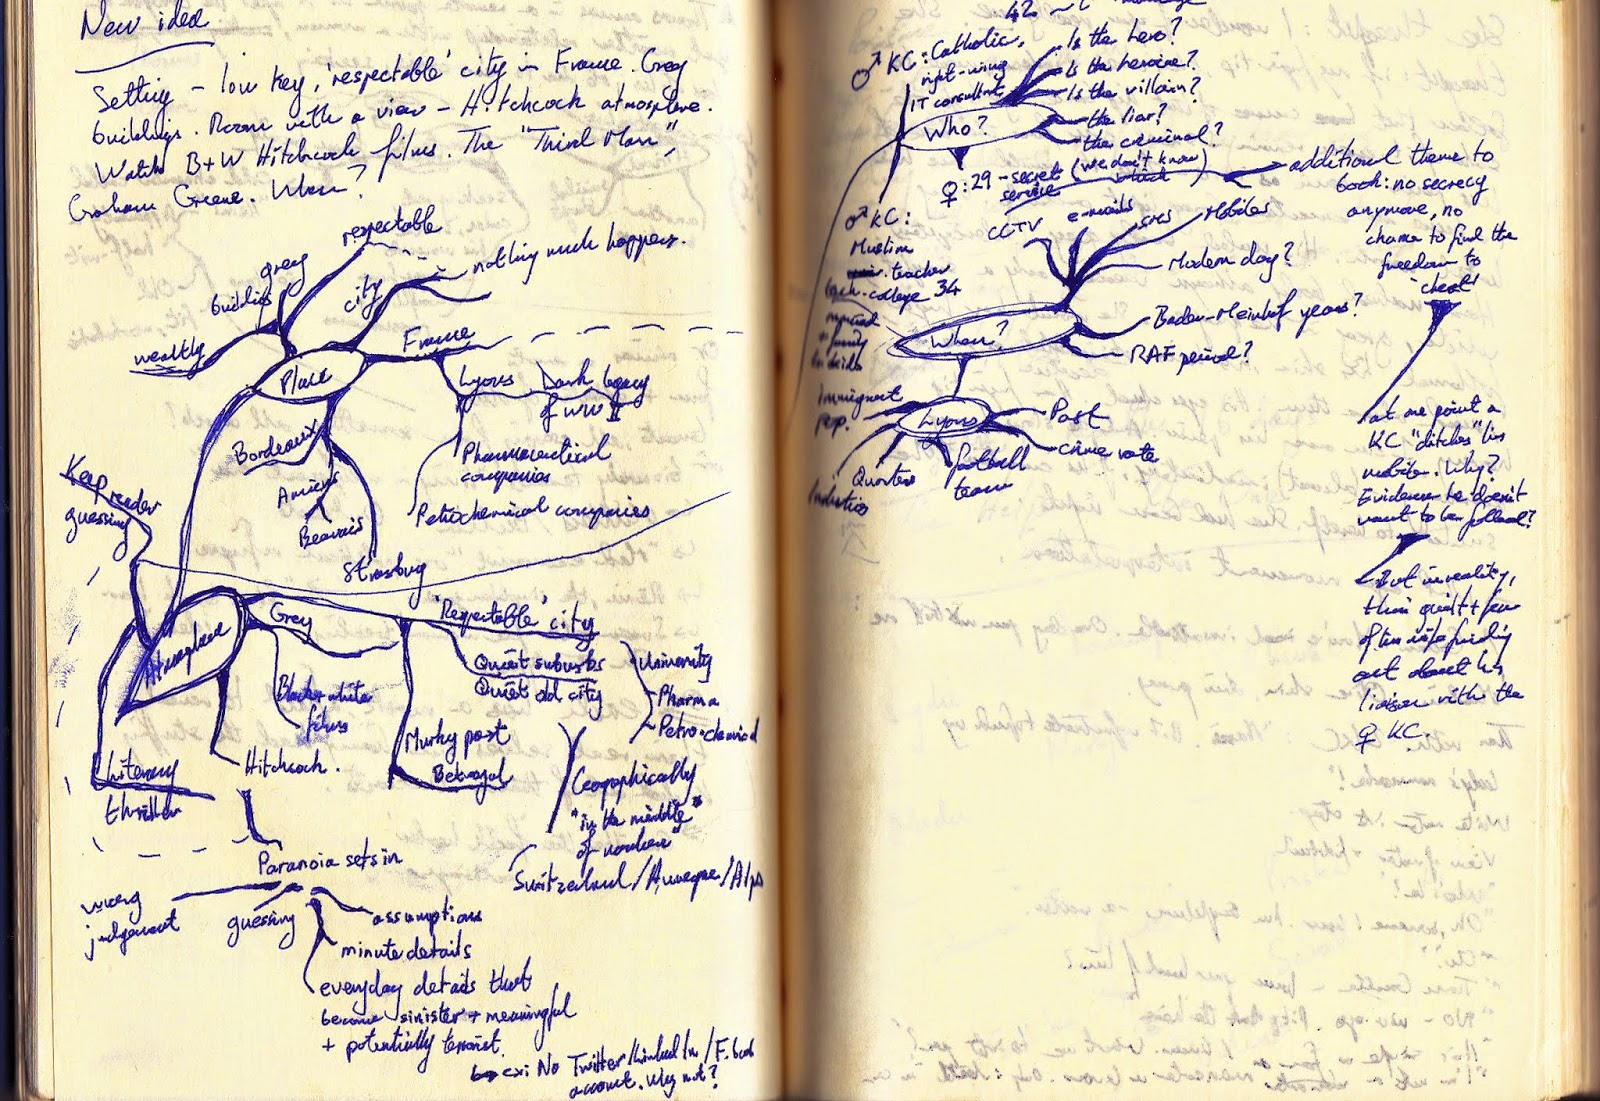 New idea
Setting – low key, 'respectable' city in France. Grey
buildings. Room with a view – Hitchcock atmosphere.
Watch B+W Hitchcock films. The "Third Man",
Graham Greene. When?
respectable
nothing much happens.
grey
buildings
city
wealthy
France
Place
Lyons
Dark legacy
of WW II
Bordeaux
Pharmaceutical
companies
Amiens
Petrochemical companies
Beauvais
Keep reader
guessing
Strasbourg
Grey
'Respectable' city
Atmosphere
Quiet suburbs
Quiet old city
University
Pharma
Petro-chemical
Black + white
films
Murky past
Betrayal
Literary
thriller
Hitchcock.
Geographically
"in the middle
of nowhere"
Switzerland / Auvergne / Alps
Paranoia sets in
wrong
judgement
guessing
assumptions
minute details
everyday details that
become sinister + meaningful
+ potentially terrorist.
ex: No Twitter / Linked In / F.book
account. Why not?
42
♂ KC: Catholic,
right-wing
IT consultant
Is the hero?
Is the heroine?
Is the villain?
the liar?
the criminal?
(we don't know
which)
Who?
♀: 29 - secret
service
additional theme to
book: no secrecy
anymore, no
chance to find the
freedom to
'cheat'
♂ KC:
Muslim
teacher
tech-college 34
married
+ family
CCTV
e-mails
SMS
Mobiles
Modern day?
Bader-Meinhof years?
RAF period?
When?
Immigrant
pop.
Lyons
Past
crime rate
football
team
Quarters
Industries
at one point a
KC "ditches" his
mobile. Why?
Evidence he doesn't
want to be followed?
But in reality,
thin guilt + fear
of his wife finding
out about his
liaison with the
♀ KC.